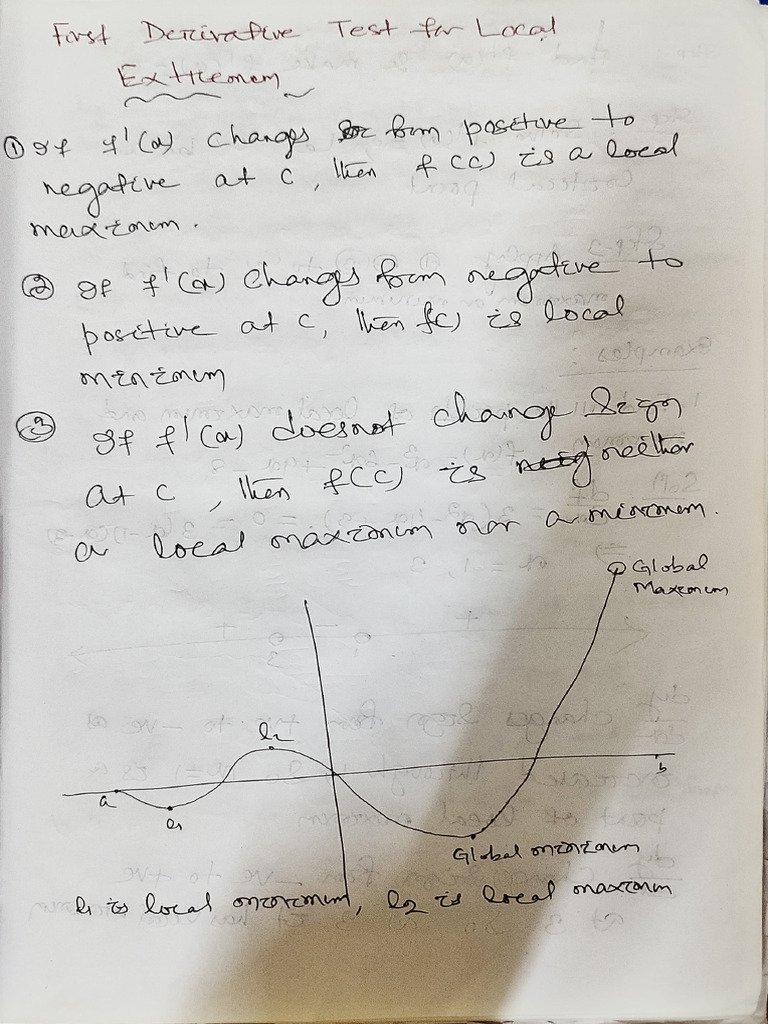 First Derivative Test for Local
Extremem
① If f'(x) changes from positive to
negative at c, then f(c) is a local
maximum.
② If f'(x) changes from negative to
positive at c, then f(c) is local
minimum
③ If f'(x) does not change sign
at c, then f(c) is neither
a local maximum nor a minimum.
Global
Maximum
l2
a
b
l1
Global minimum
l1 is local minimum, l2 is local maximum